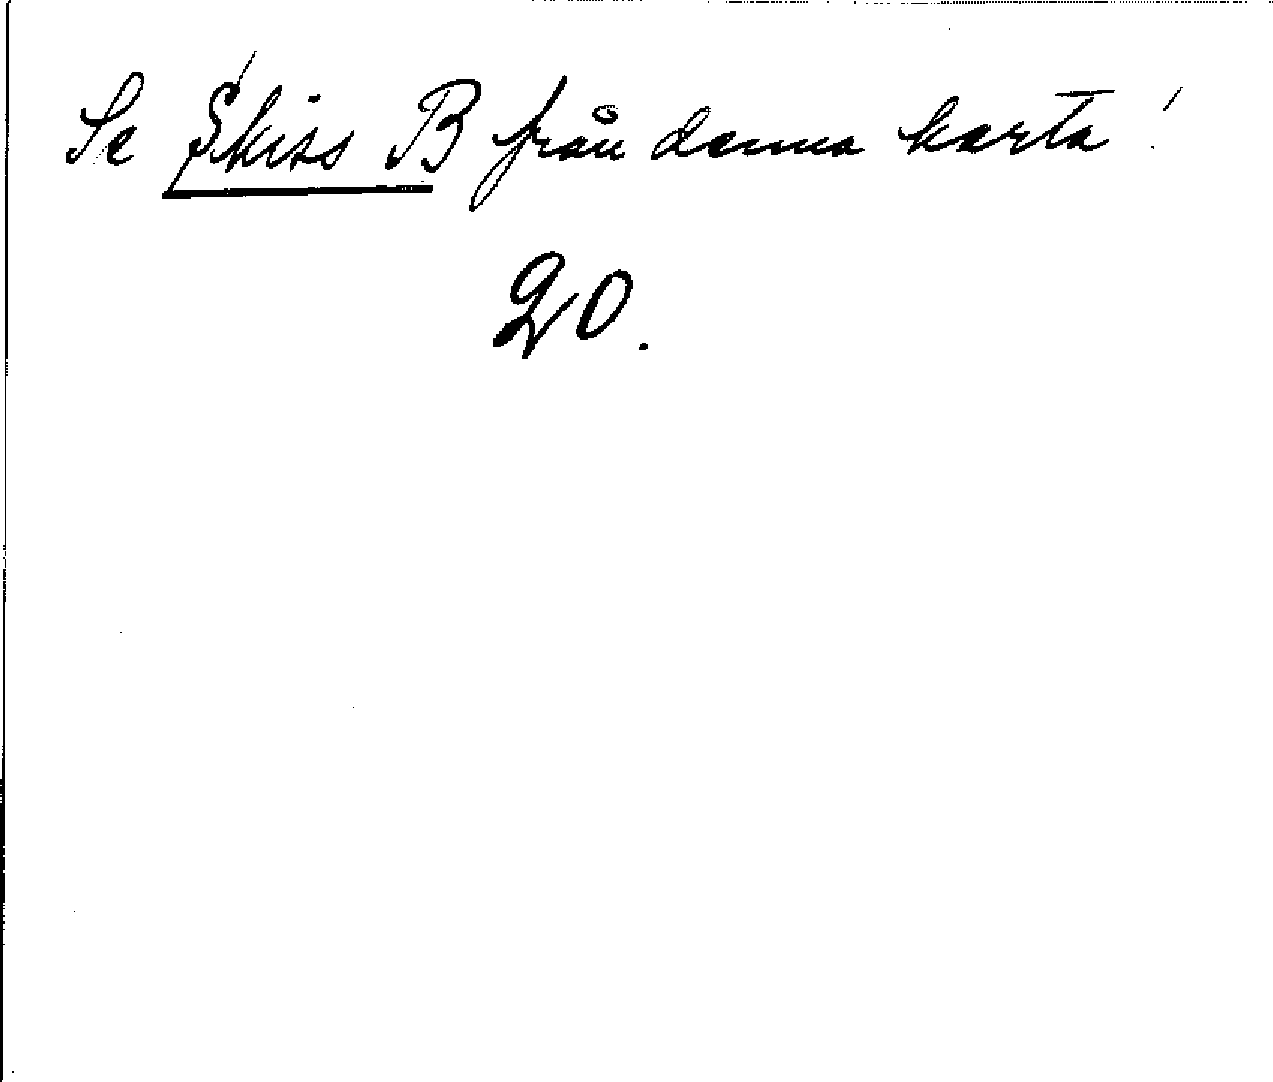 Se Skiss B från denna karta!
20.